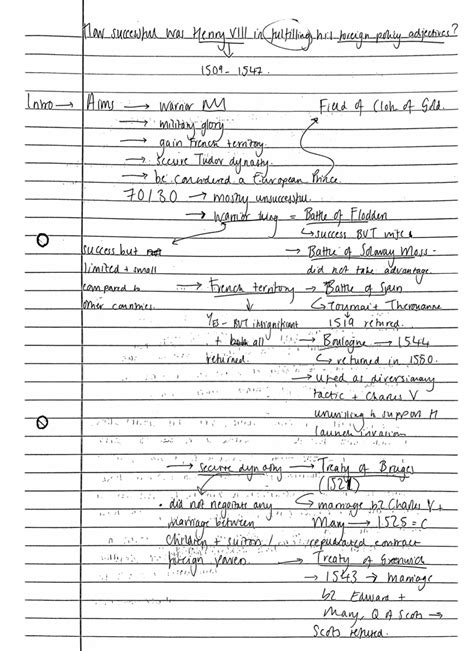 How successful was Henry VIII in fulfilling his foreign policy adjectives?
1509 - 1547
Intro → Aims → warrior Field of Cloth of Gold.
→ military glory
→ gain French territory.
→ secure Tudor dynasty.
→ be considered a European Prince.
70/30 → mostly unsuccessful.
→ warrior king = Battle of Flodden
↳ success BUT
success but → Battle of Solway Moss -
limited + small did not take advantage.
compared to → French territory → Battle of Spurs
other countries. ↳ Tournai + Therouanne
Yes - BUT insignificant 1519 retured.
+ all → Boulogne → 1544
returned. ↳ returned in 1550.
→ used as diversionary
tactic + Charles V
unwilling to support H
launch invasion
→ secure dynasty → Treaty of Bruges
(1521)
• did not negotiate any ↳ marriage b2 Charles V +
marriage between Mary → 1525 = C
children + suitors / repudiated contract
foreign power. → Treaty of Greenwich
→ 1543 → marriage
b2 Edward +
Mary, Q of Scots →
Scots refused.